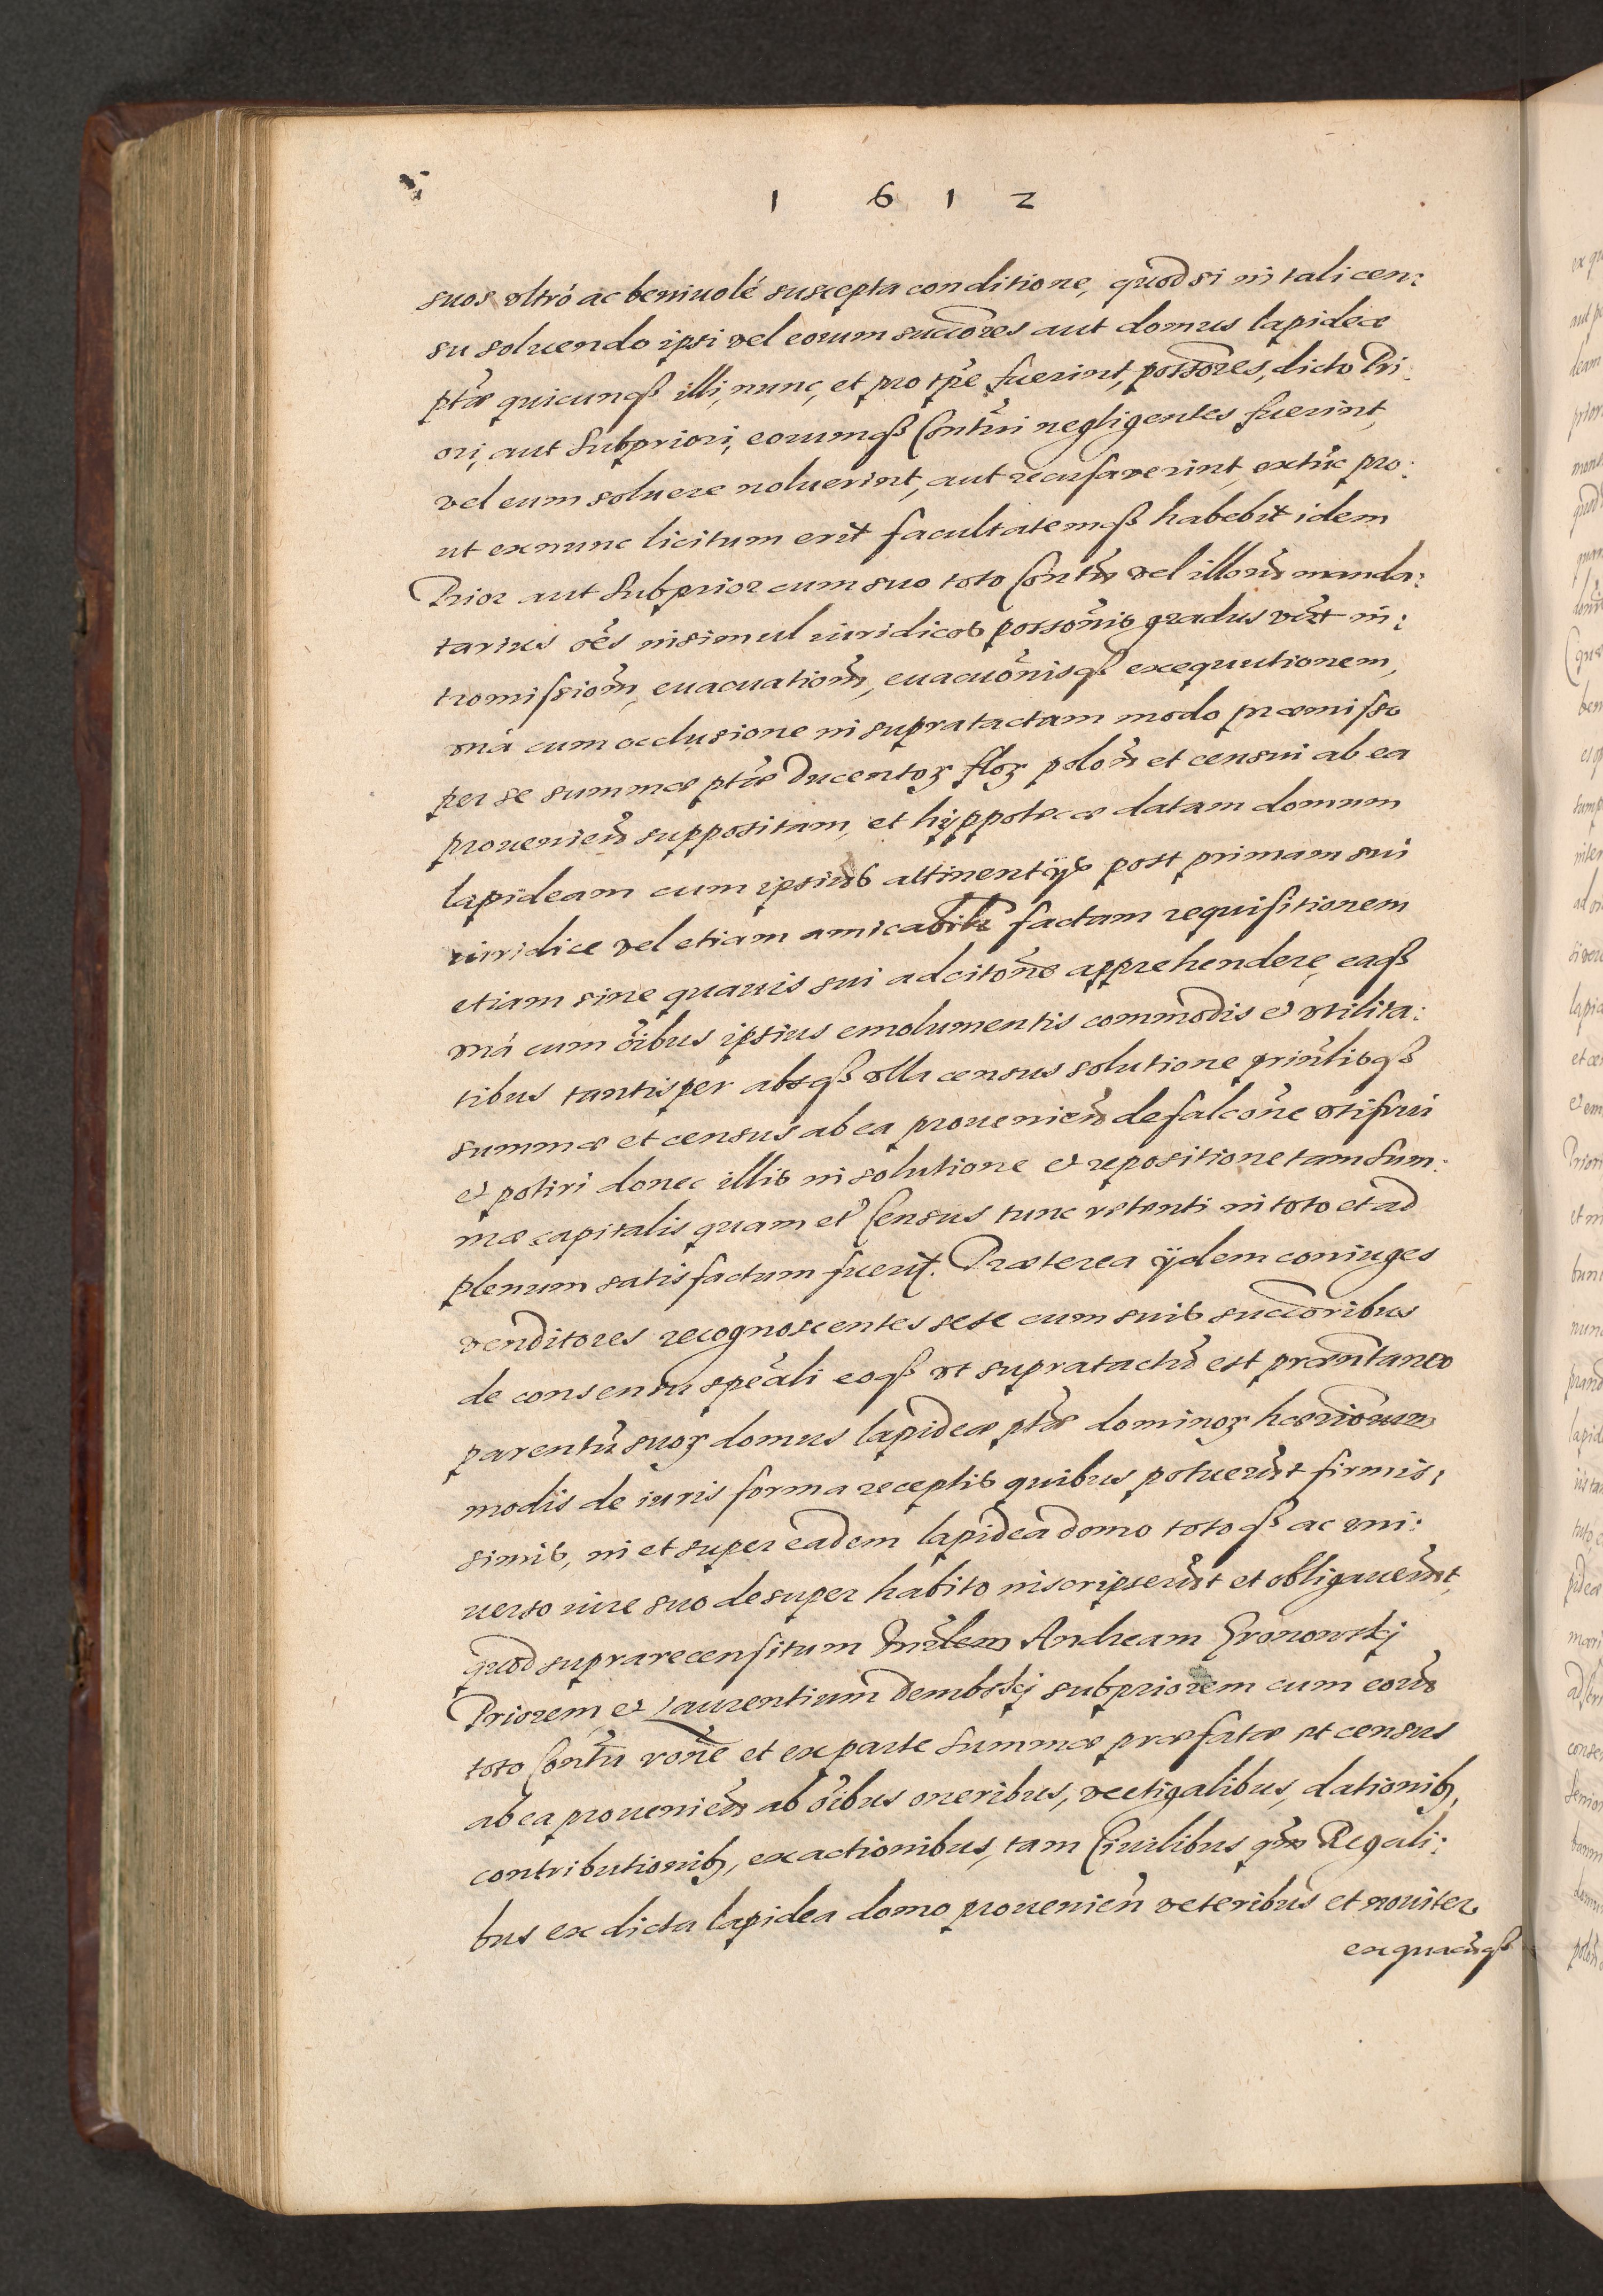 1 6 1 2
suos vltró ac beniuolé suscepta conditione, quod si in tali cen:
su soluendo ipsi vel eorum succōres aut domus lapideæ
ptæ quicunqß illi, nunc, et pro tpe fuerint, possōres, dicto Pri:
ori, aut Subpriori, eorumqß Contui negligentes fuerint,
vel eum soluere noluerint, aut recusauerint, extūc pro:
ut exnunc licitum erit facultatemqß habebit idem
Prior aut Subprior cum suo toto Contu vel illorū manda:
tarius oēs insimul iuridicos possōnis gradus in:
tromissiōm, euacuatiōm, euacuōnisqß exequutionem,
vná cum occlusione in supratactam modo præmisso
per se summæ ptæ Ducentoꝝ floꝝ polōn et censui ab ea
prouenien̄ suppositam, et hyppotecæ datam domum
lapideam cum ipsius attinentijs post primam sui
iuridice vel etiam amicabilr factam requisitionem
etiam sine quauis sui adcitōne apprehendere, eaqß
vná cum ōibus ipsius emolumentis commodis et vtilita:
tibus tantisper absqß vlla census solutione prin̄lisqß
summæ et census ab ea prouenien̄ defalcōne vtifrui
et potiri donec illis in solutione et repositione tam sum:
mæ capitalis quam et Census tunc retenti in toto et ad
plenum satisfactum fuerit. Præterea ijdem coniuges
venditores recognoscentes sese cum suis succōribus
de consensu speāli eoqß vt supratactū est præntaneo
parentū suoꝝ domus lapideæ ptæ dominoꝝ hæriōrum
modis de iuris forma receptis quibus potuerūt firmis:
simis, in et super eadem lapidea domo totoqß ac vni:
uerso iure suo desuper habito inscripserūt et obligauerūt,
quod suprarecensitum Andream Gronowskj
Priorem, et Laurentium Dembskj subpriorem cum eorū
toto Contu rōne et ex parte summæ præfatæ et census
ab ea prouenien̄ ab ōibus oneribus, vectigalibus, dationibꝫ,
contributionibꝫ, exactionibus, tam Ciuilibus qm̄ Regali:
bus ex dicta lapidea domo prouenien̄ veteribus et nouiter
exquacūqß